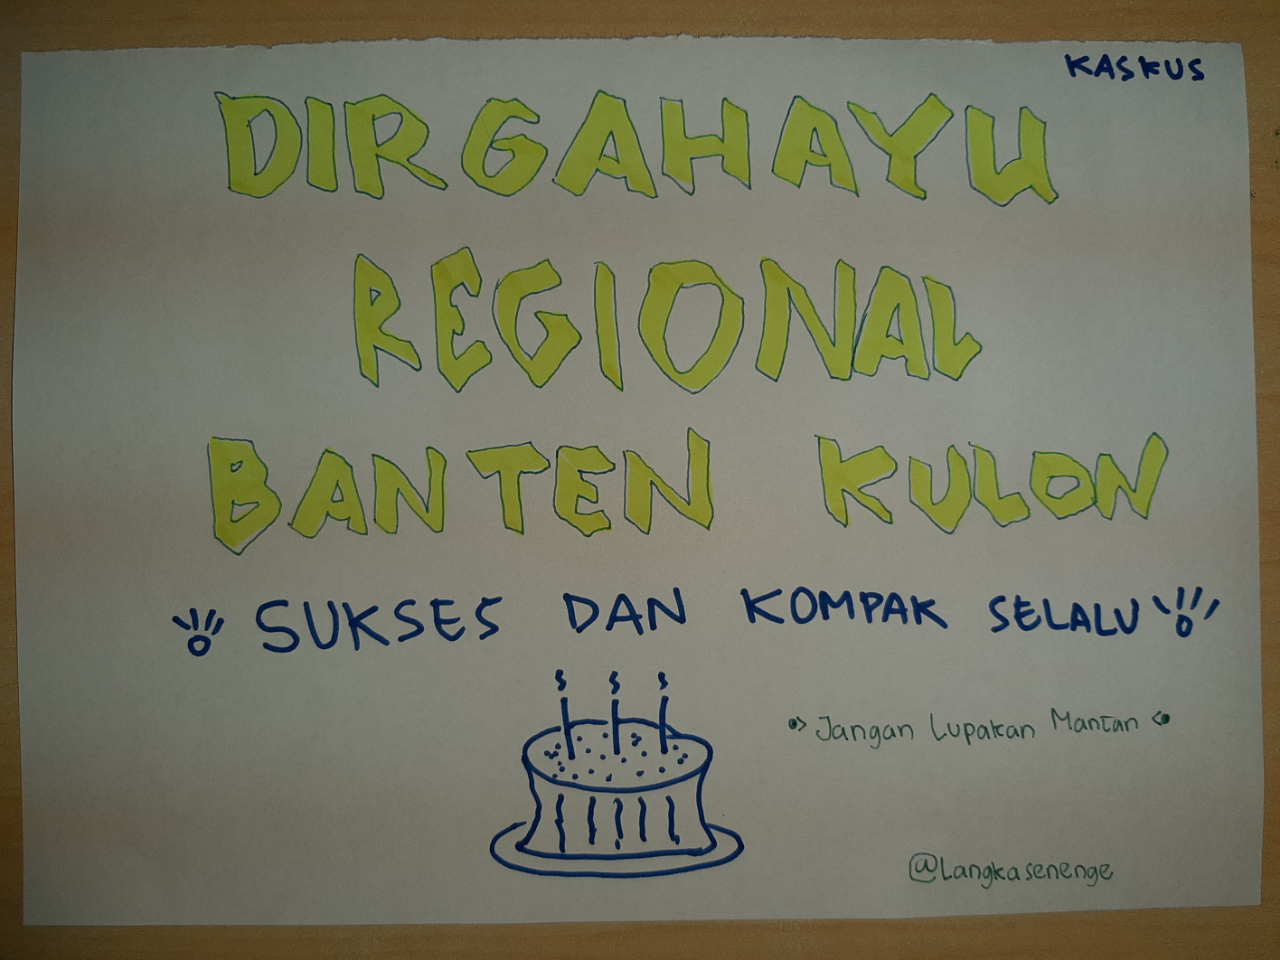 KASKUS
DIRGAHAYU
REGIONAL
BANTEN KULON
SUKSES DAN KOMPAK SELALU
Jangan Lupakan Mantan
@Langkasenenge